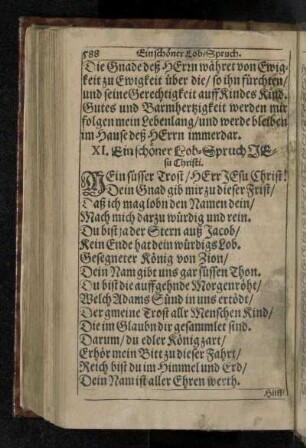 588 Ein schöner Lob-Spruch.
Die Gnade deß HErrn währet von Ewig-
keit zu Ewigkeit über die/ so ihn fürchten/
und seine Gerechtigkeit auff Kindes Kind.
Gutes und Barmhertzigkeit werden mir
folgen mein Lebenlang/ und werde bleiben
im Hause deß HErrn immerdar.
XI. Ein schöner Lob-Spruch JE-
su Christi.
MEin süsser Trost/ HErr JEsu Christ!
Dein Gnad gib mir zu dieser Frist/
Daß ich mag lobn den Namen dein/
Mach mich darzu würdig und rein.
Du bist ja der Stern auß Jacob/
Kein Ende hat dein würdigs Lob.
Gesegneter König von Zion/
Dein Nam gibt uns gar süssen Thon.
Du bist die auffgehnde Morgenröht/
Welch Adams Sünd in uns ertödt/
Der gmeine Trost aller Menschen Kind/
Die im Glaubn dir gesammlet sind.
Darum/ du edler König zart/
Erhör mein Bitt zu dieser Fahrt/
Reich bist du im Himmel und Erd/
Dein Nam ist aller Ehren werth.
Hilff